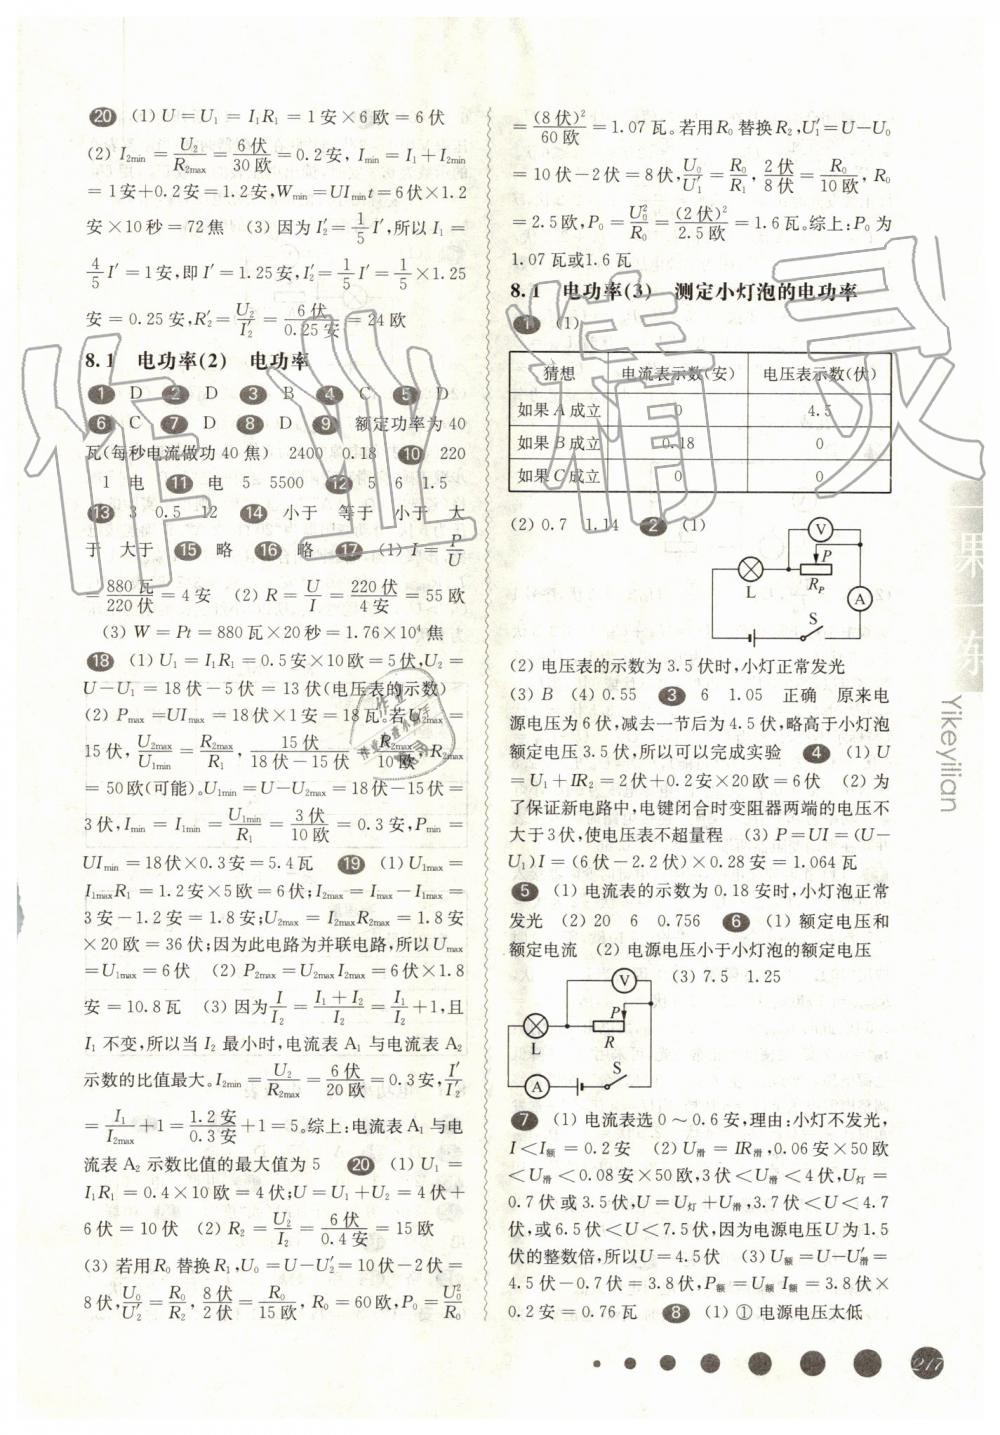 20 (1) U=U₁=I₁R₁=1安×6欧=6伏
(2) I₂min=U₂/R₂max=6伏/30欧=0.2安, Imin=I₁+I₂min
=1安+0.2安=1.2安,Wmin=UImint=6伏×1.2
安×10秒=72焦 (3) 因为I′₂=1/5 I′,所以I₁=
4/5 I′=1安,即I′=1.25安,I′₂=1/5 I′=1/5×1.25
安=0.25安,R′₂=U₂/I′₂=6伏/0.25安=24欧
8.1 电功率(2) 电功率
1 D 2 D 3 B 4 C 5 D
6 C 7 D 8 D 9 额定功率为40
瓦(每秒电流做功40焦) 2400 0.18 10 220
1 电 11 电 5 5500 12 5 6 1.5
13 3 0.5 12 14 小于 等于 小于 大
于 大于 15 略 16 略 17 (1) I=P/U
=880瓦/220伏=4安 (2) R=U/I=220伏/4安=55欧
(3) W=Pt=880瓦×20秒=1.76×10⁴焦
18 (1) U₁=I₁R₁=0.5安×10欧=5伏,U₂=
U-U₁=18伏-5伏=13伏(电压表的示数)
(2) Pmax=UImax=18伏×1安=18瓦。若U₂max=
15伏,U₂max/U₁min=R₂max/R₁,15伏/(18伏-15伏)=R₂max/10欧,R₂max
=50欧(可能)。U₁min=U-U₂max=18伏-15伏=
3伏,Imin=I₁min=U₁min/R₁=3伏/10欧=0.3安,Pmin=
UImin=18伏×0.3安=5.4瓦 19 (1) U₁max=
I₁maxR₁=1.2安×5欧=6伏;I₂max=Imax-I₁max=
3安-1.2安=1.8安;U₂max=I₂maxR₂max=1.8安
×20欧=36伏;因为此电路为并联电路,所以Umax
=U₁max=6伏 (2) P₂max=U₂maxI₂max=6伏×1.8
安=10.8瓦 (3) 因为I/I₂=(I₁+I₂)/I₂=I₁/I₂+1,且
I₁不变,所以当I₂最小时,电流表A₁与电流表A₂
示数的比值最大。I₂min=U₂/R₂max=6伏/20欧=0.3安,I′/I′₂
=I₁/I₂max+1=1.2安/0.3安+1=5。综上:电流表A₁与电
流表A₂示数比值的最大值为5 20 (1) U₁=
I₁R₁=0.4×10欧=4伏;U=U₁+U₂=4伏+
6伏=10伏 (2) R₂=U₂/I₂=6伏/0.4安=15欧
(3) 若用R₀替换R₁,U₀=U-U′₂=10伏-2伏=
8伏,U₀/U′₂=R₀/R₂,8伏/2伏=R₀/15欧,R₀=60欧,P₀=U₀²/R₀
=(8伏)²/60欧=1.07瓦。若用R₀替换R₂,U′₁=U-U₀
=10伏-2伏=8伏,U₀/U′₁=R₀/R₁,2伏/8伏=R₀/10欧,R₀
=2.5欧,P₀=U₀²/R₀=(2伏)²/2.5欧=1.6瓦。综上:P₀为
1.07瓦或1.6瓦
8.1 电功率(3) 测定小灯泡的电功率
1 (1)
猜想 电流表示数(安) 电压表示数(伏)
如果A成立 0 4.5
如果B成立 0.18 0
如果C成立 0 0
(2) 0.7 1.14 2 (1)
V
P
L RP A
S
(2) 电压表的示数为3.5伏时,小灯正常发光
(3) B (4) 0.55 3 6 1.05 正确 原来电
源电压为6伏,减去一节后为4.5伏,略高于小灯泡
额定电压3.5伏,所以可以完成实验 4 (1) U
=U₁+IR₂=2伏+0.2安×20欧=6伏 (2) 为
了保证新电路中,电键闭合时变阻器两端的电压不
大于3伏,使电压表不超量程 (3) P=UI=(U-
U₁)I=(6伏-2.2伏)×0.28安=1.064瓦
5 (1) 电流表的示数为0.18安时,小灯泡正常
发光 (2) 20 6 0.756 6 (1) 额定电压和
额定电流 (2) 电源电压小于小灯泡的额定电压
(3) 7.5 1.25
V
P
L R
A S
7 (1) 电流表选0~0.6安,理由:小灯不发光,
I<I额=0.2安 (2) U滑=IR滑,0.06安×50欧
<U滑<0.08安×50欧,3伏<U滑<4伏,U灯=
0.7伏或3.5伏,U=U灯+U滑,3.7伏<U<4.7
伏,或6.5伏<U<7.5伏,因为电源电压U为1.5
伏的整数倍,所以U=4.5伏 (3) U额=U-U′滑=
4.5伏-0.7伏=3.8伏,P额=U额I额=3.8伏×
0.2安=0.76瓦 8 (1) ① 电源电压太低
一课一练
Yikeyilian
217
作业精灵